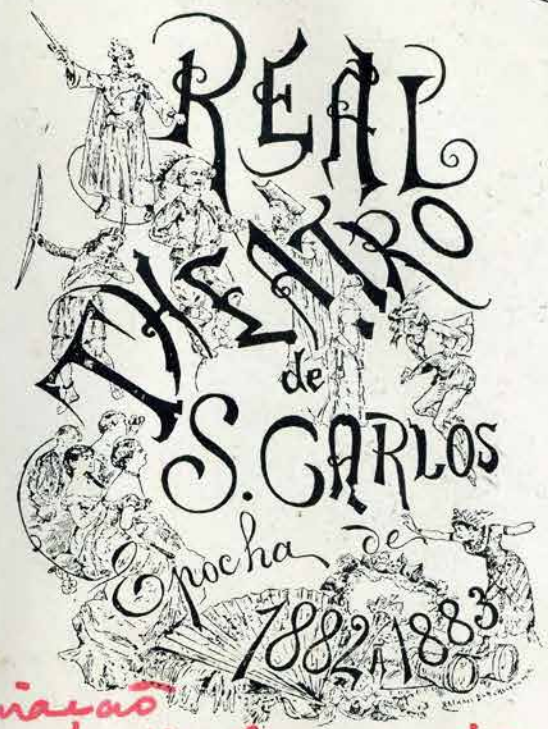 REAL
THEATRO
de
S. CARLOS
Epocha de
1882 A 1883